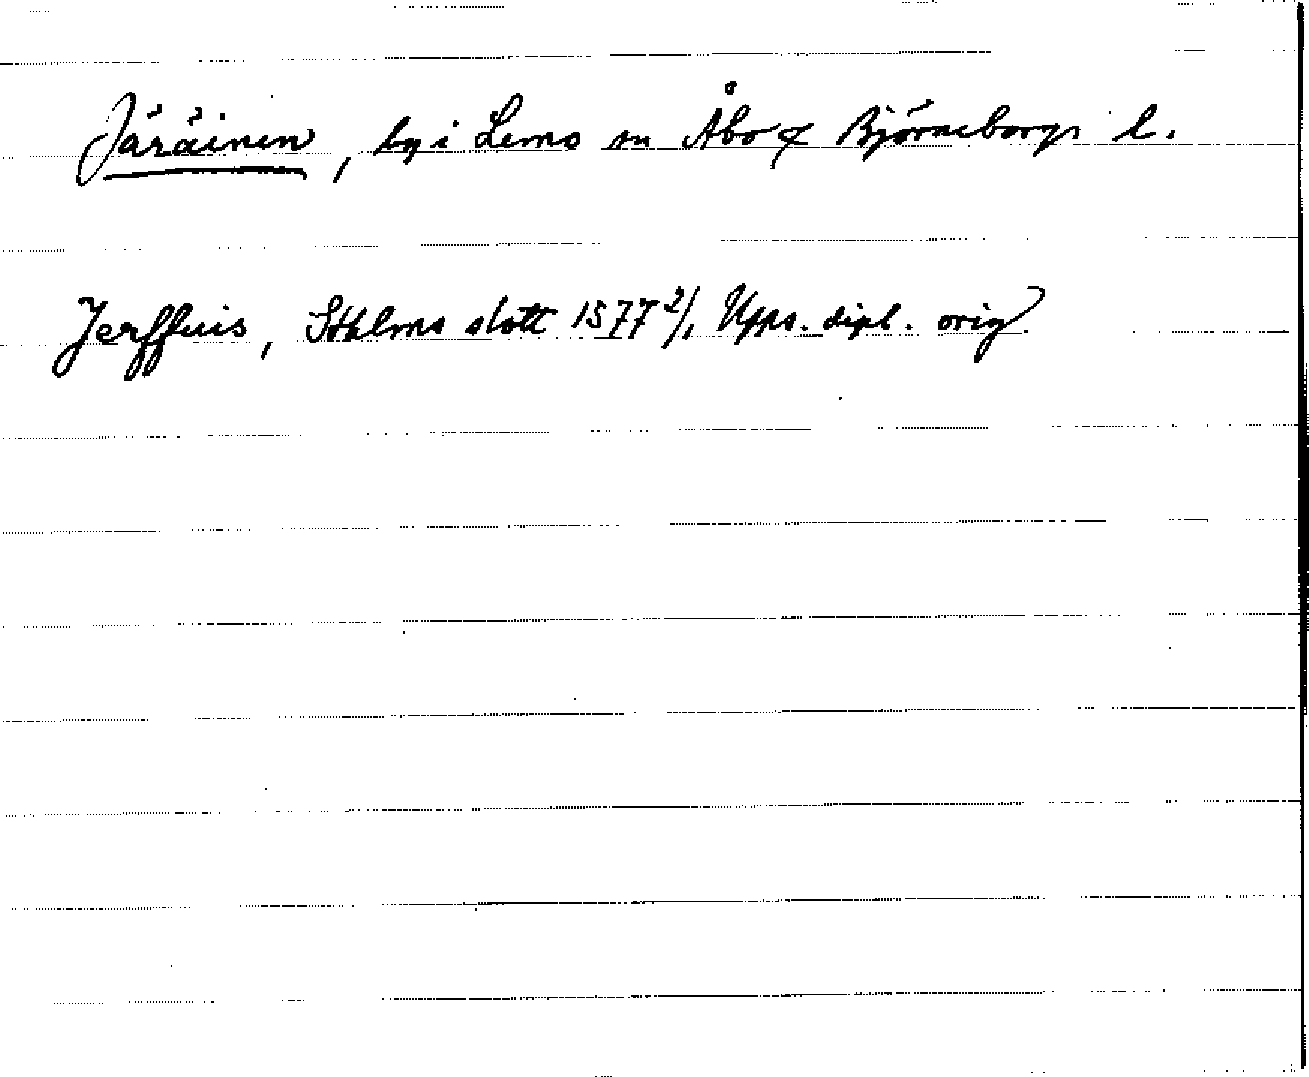 Järäinen, by i Lemo sn Åbo & Björneborgs l.
Jerffuis, Sthlms slott 1577 2/1 Upps. dipl. orig